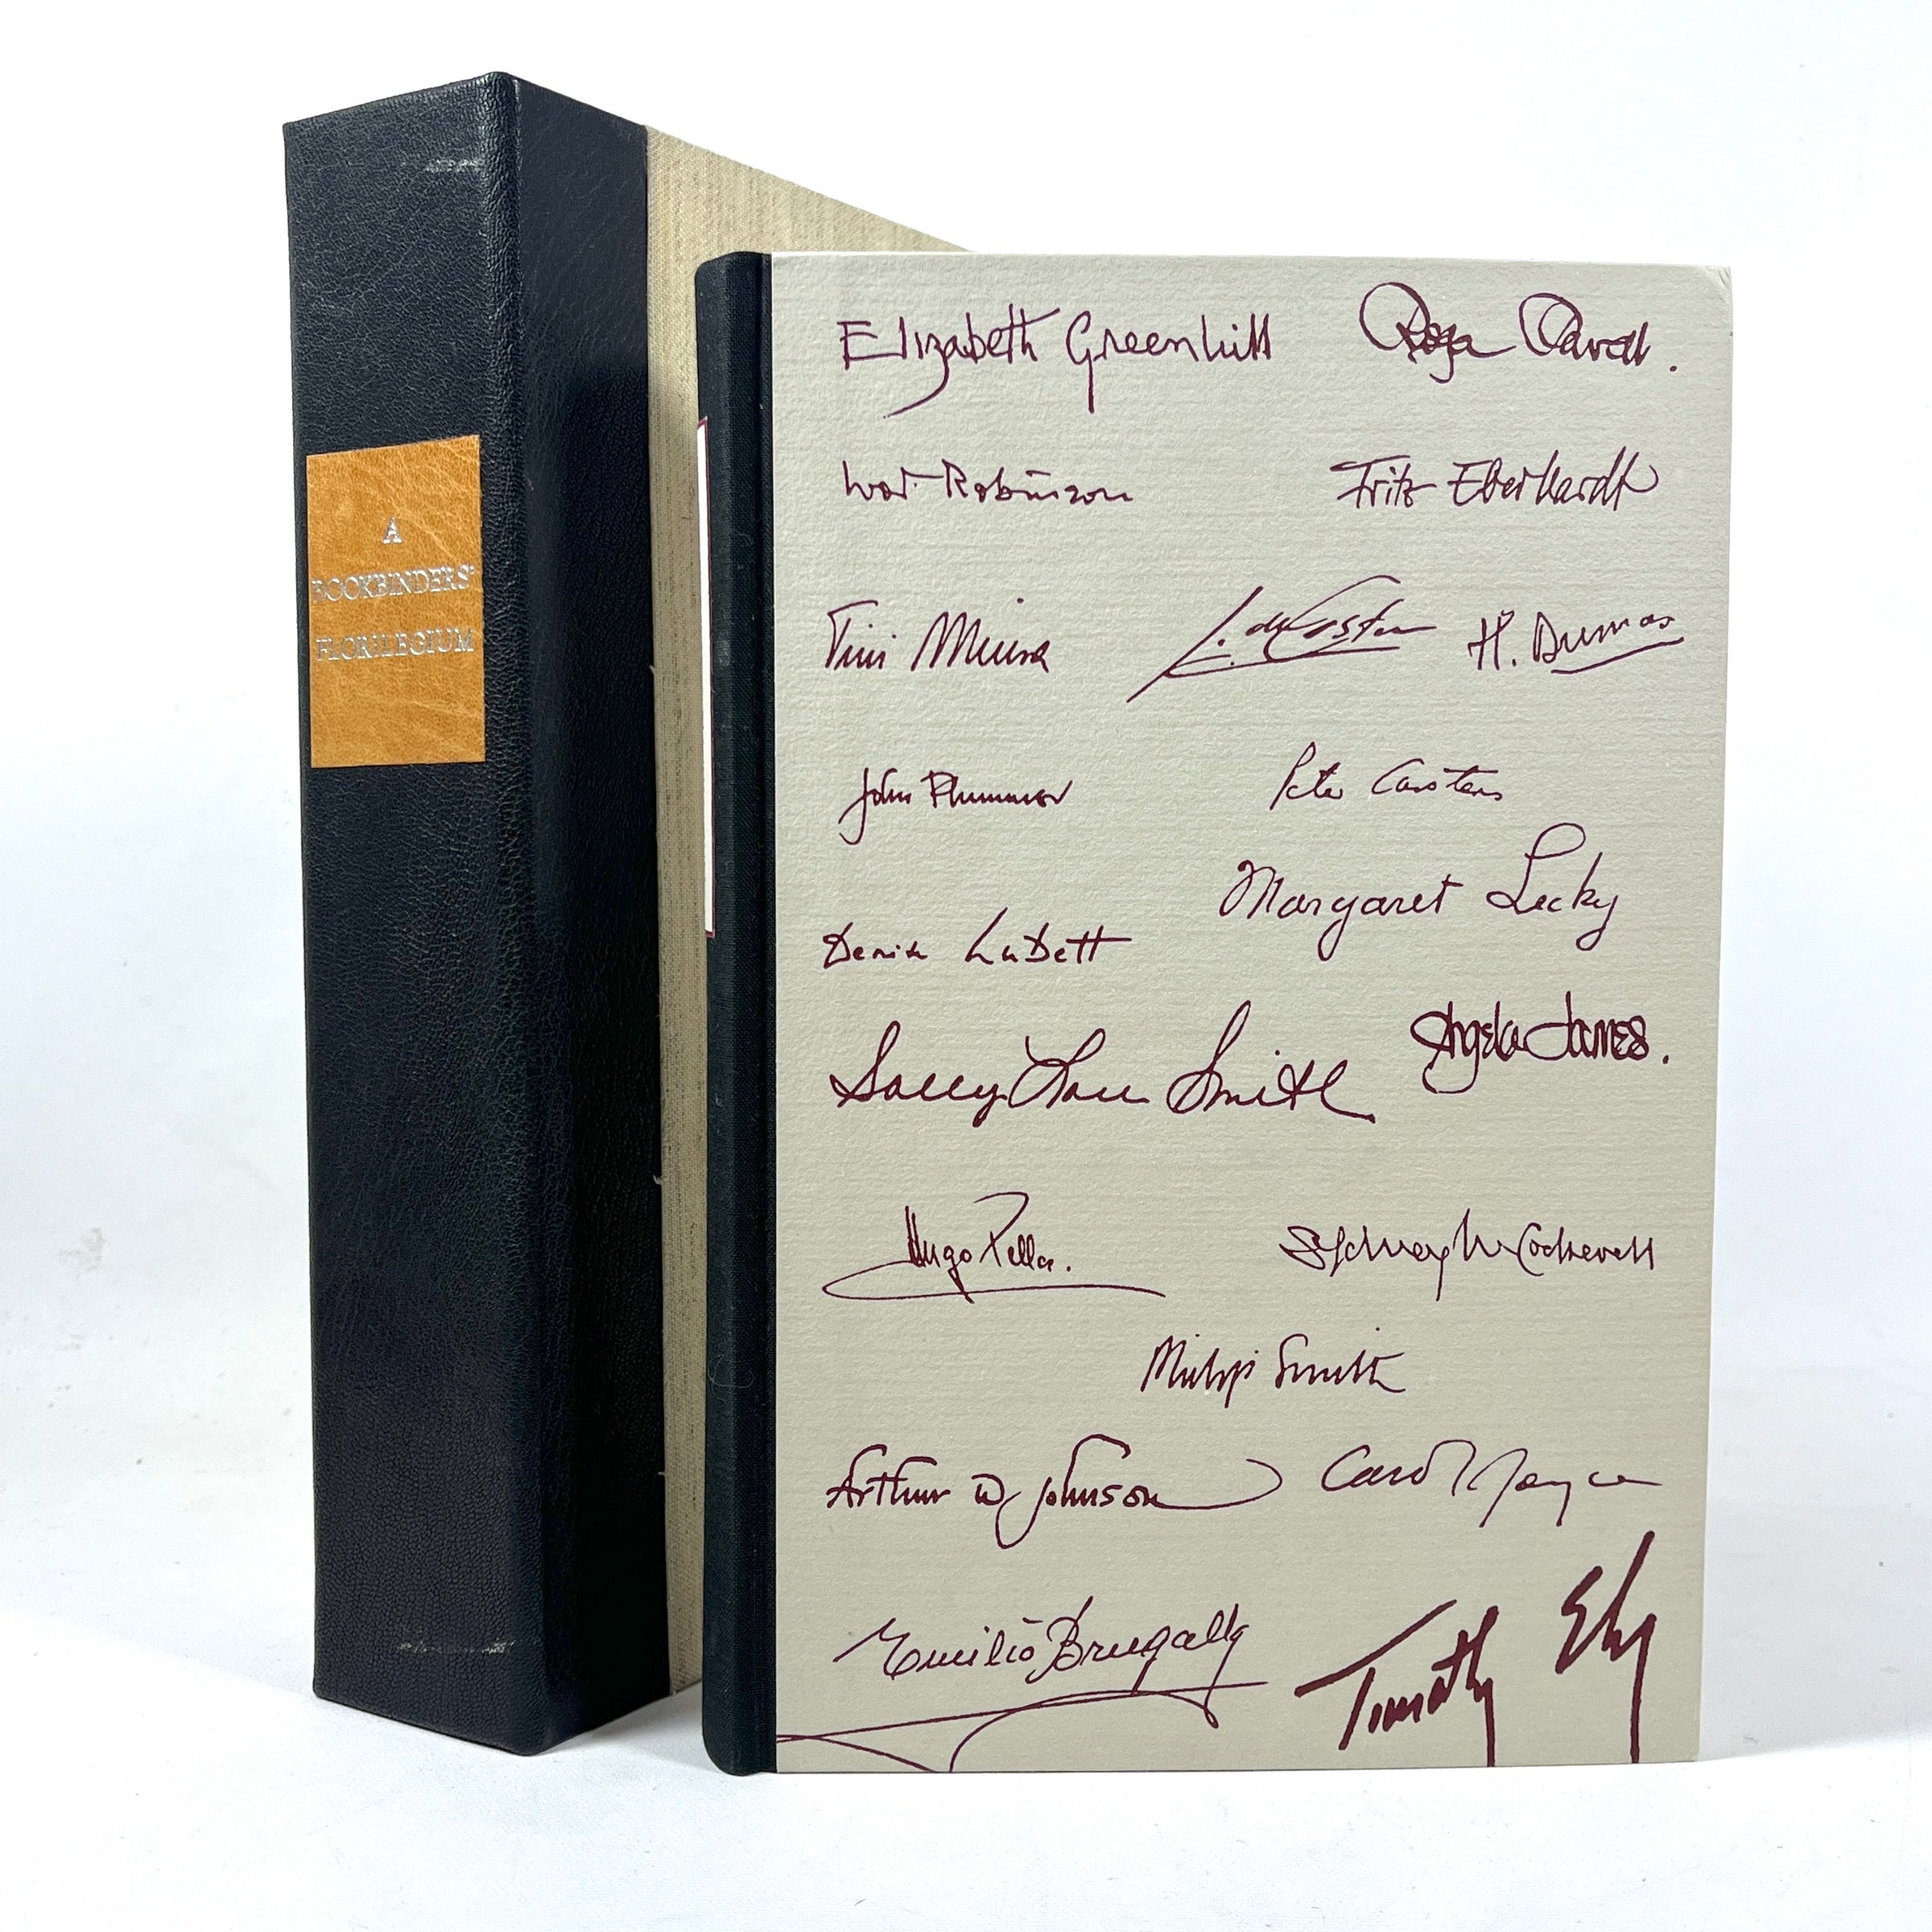 A
BOOKBINDERS'
FLORILEGIUM
Elizabeth Greenhill
Ivor Robinson Fritz Eberhardt
Tini Miura H. Dumas
John Plummer Peter Carstens
Margaret Lecky
Denise Lubett
Angela James.
Sally Lou Smith
Hugo Peller. Sydney M Cockerell
Philip Smith
Arthur W Johnson
Emilio Brugalla Timothy Ely